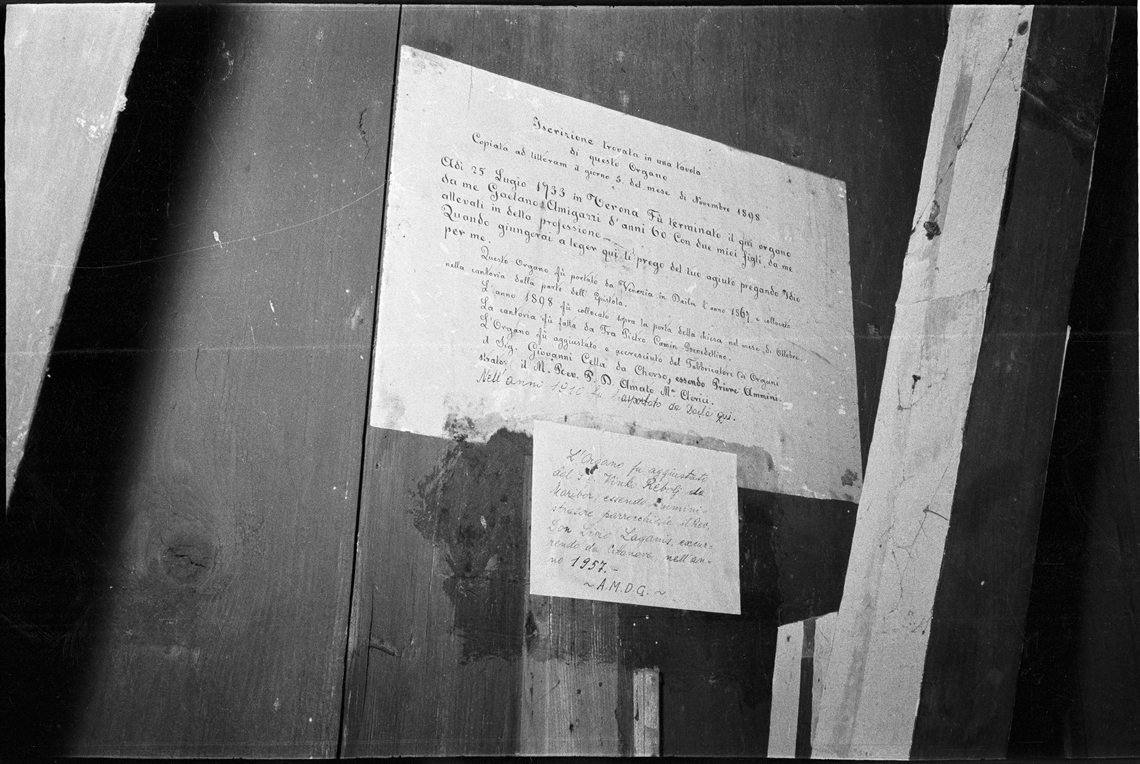 Iscrizione trovata in una tavola
di questo Organo
Copiata ad litteram il giorno 5 del mese di Novembre 1898
Adi 25 Lugio 1733 in Verona Fù terminato il qui organo
da me Gaetano Amigazzi d'anni 60 Con due miei figli, da me
allevati in detto professione
Quando giungerai a leger qui ti prego del tuo agiuto pregando Idio
per me.
Questo Organo fù portato da Venezia in Daila l'anno 1867 e collocato
nella cantoria dalla parte dell'Epistola.
L'anno 1898 fù collocato sopra la porta della chiesa nel mese di Ottobre.
La cantoria fù fatta da Fra Pietro Comin Benedettino.
L'Organo fù aggiustato e accresciuto dal Fabbricatore di Organi
il Sig. Giovanni Cella da Cherso, essendo Priore Ammini-
stratore il M. Rev. P. D. Amato Mª Clerici.
Nell'anno trasportato da Daila qui.
L'Organo fu aggiustato
del Vinko Rebolj da
Maribor, essendo ammini-
stratore parrocchiale il Rev.
Don Livio Lagonis, excur-
rendo da Cittanova nell'an-
no 1957.-
~ A.M.D.G. ~